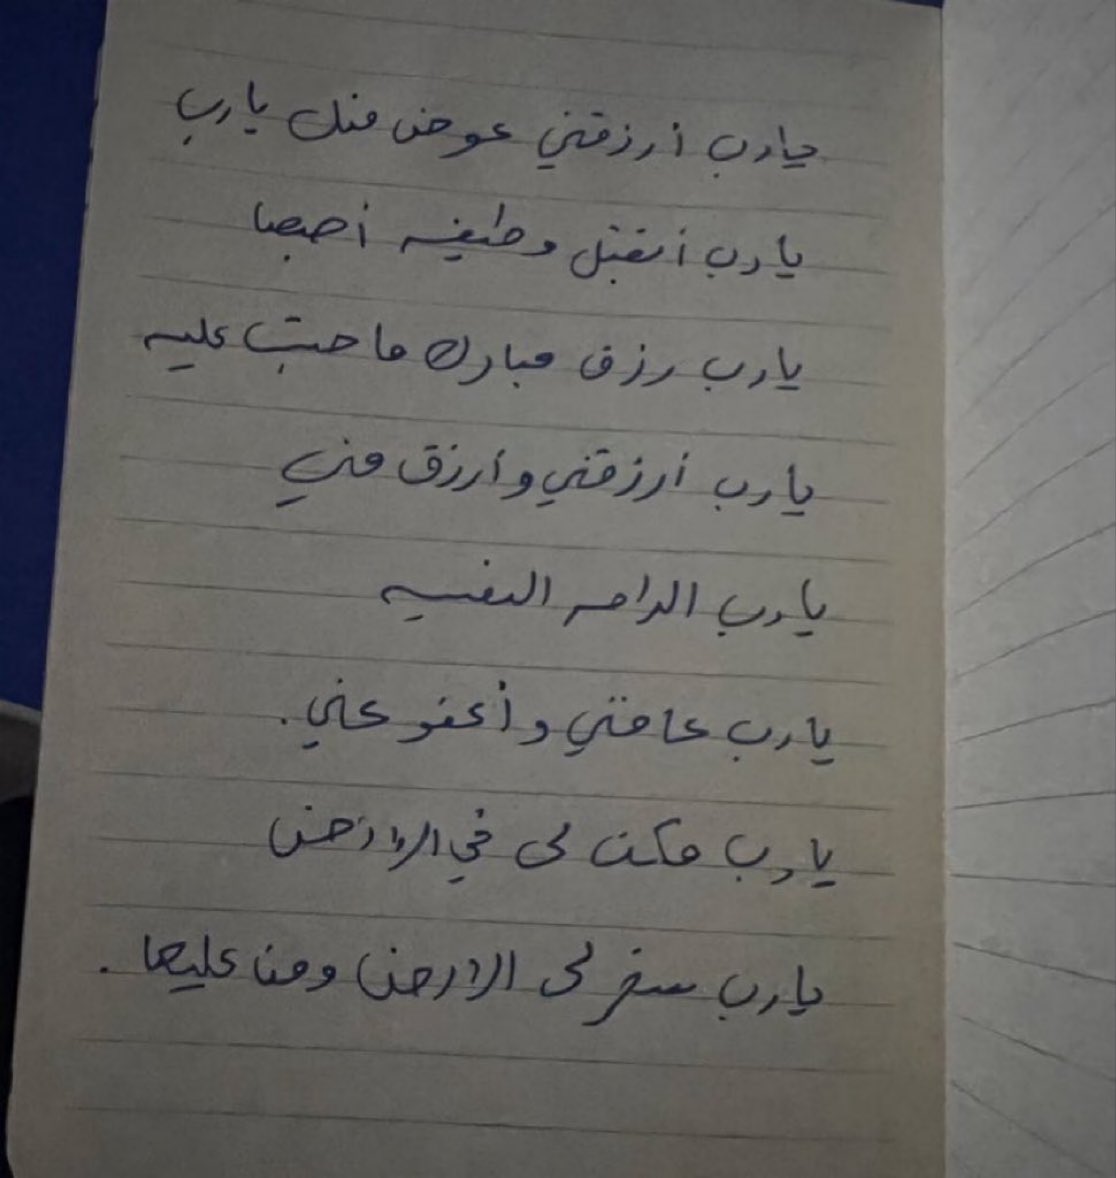 يارب أرزقني عوض منك يارب
يارب أنقبل وظيفه أحبها
يارب رزق مبارك ما حبيت عليه
يارب أرزقني وأرزق مني
يارب الراحه النفسيه
يارب عافني وأعفو عني.
يارب مكن لي في الارض
يارب سخر لي الارض ومن عليها.